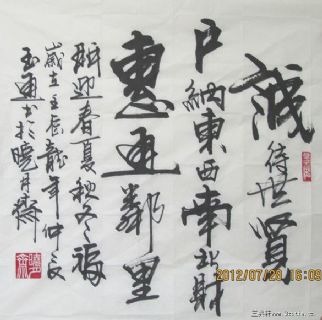 誠待世賢
戶納東西南北財
惠通鄰里
聯迎春夏秋冬福
歲在壬辰龍年仲夏
玉通書於曉月齋
2012/07/29 16:09